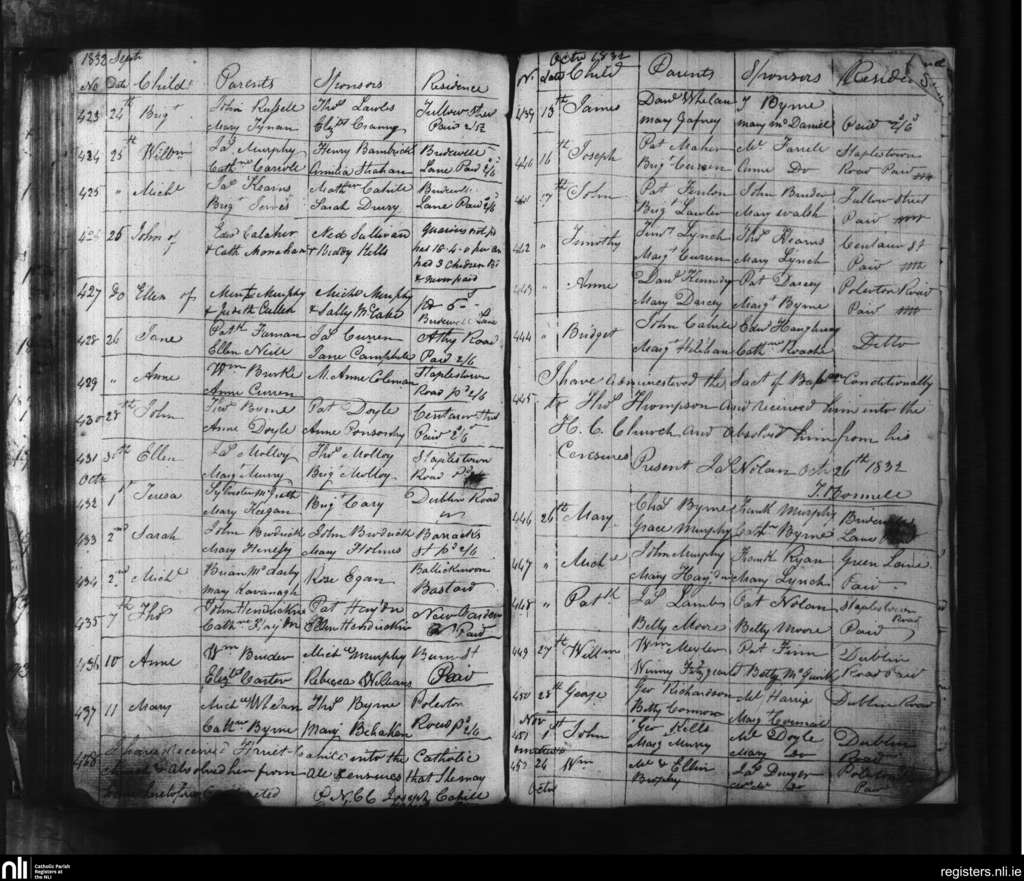 1832 Sept
No Date Child Parents Sponsors Residence
423 24th Brigt John Russell Thos Lawler Tullow Street
Mary Tynan Elizth Cranny Paid 2/6
424 25th Willm Jas Murphy Henry Bambrick Bridewell
Cathne Carroll Amilia Strahan Lane Paid 2/6
425 " Michl Jas Kearns Mathw Cahill
Brigt Sarah Drury Lane Paid 2/6
426 25 John of Edwd Ned Sullivan
& Cath Monahan & Biddy Kells has 18-4-0 per an
had 3 Children
& never paid
427 Do Ellen of Murphy Michl Murphy
& Judith Cullen & Sally Bridewell Lane
428 26 Jane Patk Jas Curren Athy Road
Ellen Neill Jane Campbell Paid 2/6
429 " Anne Wm Burke M. Anne Coleman Staplestown
Anne Curren Road pd 2/6
430 28th John Byrne Pat Doyle Centaur Street
Anne Doyle Anne Ponsonby Paid 2/6
431 30th Ellen Jas Molloy Thos Molloy Staplestown
Margt Murry Brigt Molloy Road Pd
Octr
432 1st Teresa Sylvester McGrath Brigt Cary Dublin Road
Mary Keegan
433 2nd Sarah John Brodrick John Brodrick Barrack
Mary Henesy Mary Holmes St pd 2/6
434 2nd Michl Brian Rose Egan Ballickmoon
Mary Kavanagh Bastard
435 7th Thos John Hendricken Pat Haydn New Garden
Cathne Haydn Ellen Hendricken Paid
436 10 Anne Wm Binder Michl Murphy Burn St
Elizth Carter Rebecca Williams Paid
437 11 Mary Michl Whelan Thos Byrne Polerton
Cathne Byrne Margt Road pd 2/6
438 I have received Harriet Cahill into the Catholic
Church & Absolved her from all Censures that She may
have heretofore Contracted P.N.CC Joseph Cahill
Octr 1832
No Date Child Parents Sponsors Residence
439 13th James Danl Whelan J Byrne
Mary Gafney Mary McDaniel Paid 2/6
440 16th Joseph Pat Maher Mc Farrell Staplestown
Brigt Curren Anne Do Road Paid
441 17th John Pat Fenlon John Binder Tullow Street
Brigt Lawler Mary Walsh Paid
442 " Timothy Timy Lynch Thos Kearns Centaur St
Margt Curren Mary Lynch Paid
443 " Anne Danl Kennedy Pat Darcy Polerton Road
Mary Darcy Margt Byrne Paid
444 " Bridget John Cahill Edw Haughney
Margt Cathne Roache Ditto
I have administered the Sact of Bapsm Conditionally
445 to Thos Thompson and received him into the
H. C. Church and Absolved him from his
Censures Present Jas Nolan Octr 26th 1832
446 26th Mary Chas Byrne Frank Murphy
Grace Murphy Cathne Byrne Lane
447 " Michl John Murphy Frank Ryan Green Lane
Mary Haydn Mary Lynch Paid
448 " Patk Jas Lambe Pat Nolan Staplestown
Road
Betty Moore Betty Moore Paid
449 27th Willm Wm Mexler Pat Finn Dublin
Winny Fitzgerald Betty Road Paid
450 28th George Geo Richardson Harris Dublin Road
Betty Connor Mary Cormac
Nov
451 1st John Geo Kells Ml Doyle Dublin
Margt Murry Mary Do Road
omitted
452 26 Wm Ml & Ellen Jas Dwyer
Octr Brophy Do Paid
nli
Catholic Parish
Registers at
the NLI
registers.nli.ie